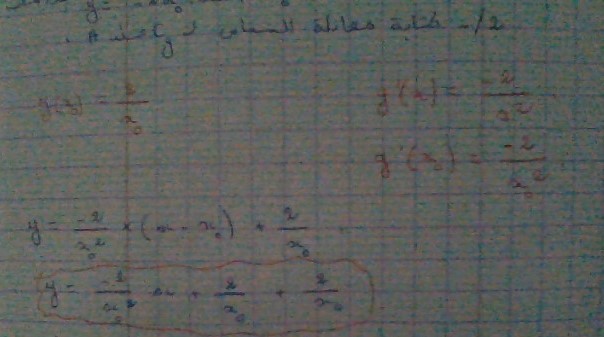 y = 
2/- كتابة معادلة المماس لـ Cg عند A.
g(x₀) = 2/x₀
g'(x) = -2/x²
g'(x₀) = -2/x₀²
y = -2/x₀² × (x - x₀) + 2/x₀
y = -2/x₀² x + 2/x₀ + 2/x₀